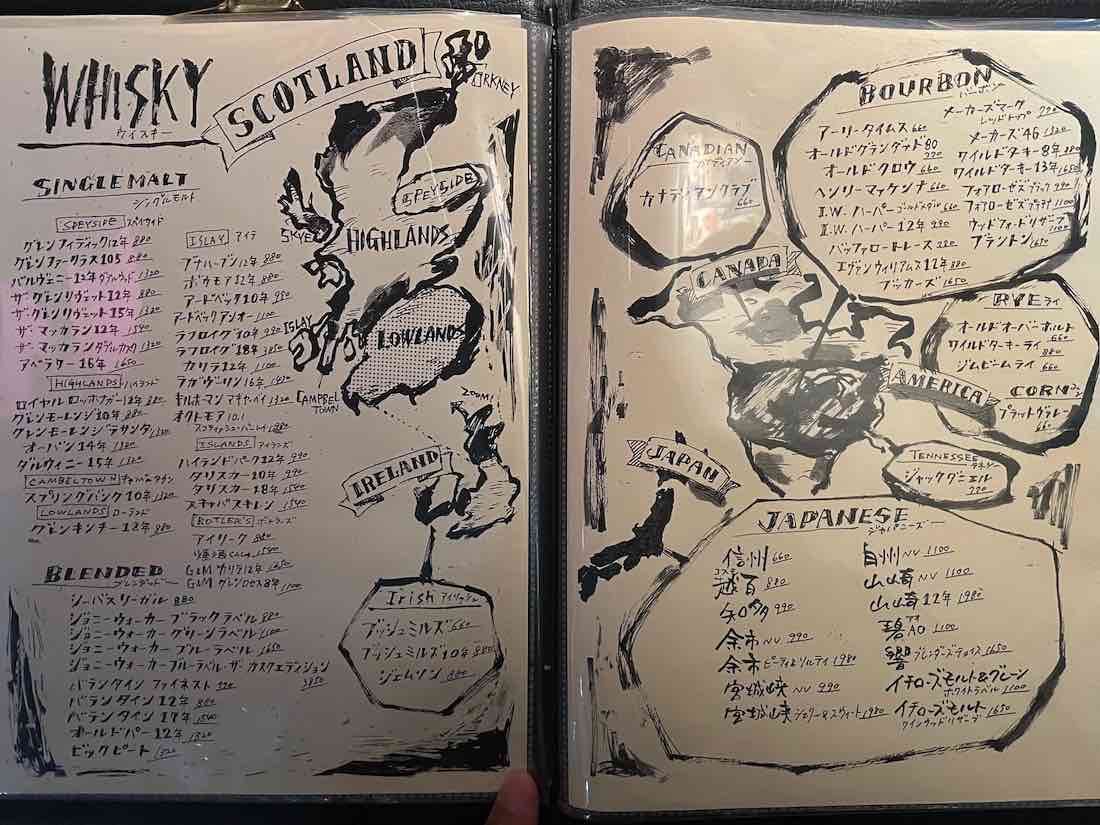 WHISKY
ウイスキー
SCOTLAND
ORKNEY
SPEYSIDE
SKYE
HIGHLANDS
ISLAY
LOWLANDS
CAMPBEL TOWN
ZOOM!
IRELAND
SINGLE MALT
シングルモルト
SPEYSIDE スペイサイド
グレンフィディック12年 880
グレンファークラス105 880
バルヴェニー12年 ダブルウッド 1320
ザ・グレンリヴェット12年 880
ザ・グレンリヴェット15年 1320
ザ・マッカラン12年 1540
ザ・マッカラン ダブルカスク 1320
アベラワー16年 1650
HIGHLANDS ハイランド
ロイヤルロッホナガー12年 880
グレンモーレンジ10年 880
グレンモーレンジ ラサンタ 1320
オーバン14年 1320
ダルウィニー15年 1320
CAMBELTOWN キャンベルタウン
スプリングバンク10年 1320
LOWLANDS ローランド
グレンキンチー12年 880
ISLAY アイラ
ブナハーブン12年 880
ボウモア12年 880
アードベッグ10年 950
アードベッグアンオー 1100
ラフロイグ10年 990
ラフロイグ18年 3850
カリラ12年 1100
ラガヴーリン16年
キルホーマン マキヤーベイ 1320
オクトモア 10.1
スコティッシュ・バーレイ
ISLANDS アイランズ
ハイランドパーク12年 990
タリスカー10年 990
タリスカー18年 1540
スキャパスキレン 1540
BOTLER'S ボトラーズ
アイリーク 880
G&M カリラ12年 1650
G&M グレンロセス8年 1100
BLENDED
ブレンデッド
シーバスリーガル 880
ジョニーウォーカー ブラックラベル 880
ジョニーウォーカー グリーンラベル 1100
ジョニーウォーカー ブルーラベル 1650
ジョニーウォーカーブルーラベル ザ カスクエディション 3850
バランタイン ファイネスト 770
バランタイン 12年 880
バランタイン 17年 1540
オールドパー 12年 1320
ビッグピート 1320
Irish アイリッシュ
ブッシュミルズ 660
ブッシュミルズ10年 880
ジェムソン 660
CANADIAN
カナディアン
カナディアンクラブ
660
CANADA
AMERICA
JAPAN
BOURBON
バーボン
アーリータイムス 660
オールドグランダッド80
770
オールドクロウ 660
ヘンリーマッケンナ 660
I.W. ハーパー ゴールドメダル 660
I.W. ハーパー 12年 990
バッファロートレース 880
エヴァンウィリアムス12年 880
ブッカーズ 1650
メーカーズマーク
レッドトップ 770
メーカーズ46 1320
ワイルドターキー8年 880
ワイルドターキー13年 1650
フォアローゼズブラック 990
フォアローゼズプラチナ 1100
ウッドフォードリザーブ
1100
ブラントン 1650
RYE ライ
オールドオーバーホルト
660
ワイルドターキーライ
880
ジムビームライ 660
CORN コーン
プラットヴァレー
660
TENNESSEE
テネシー
ジャックダニエル
770
JAPANESE
ジャパニーズ
信州 660
コスモ
越百 880
知多 990
余市 NV 990
余市 ピーティ&ソルティ 1980
宮城峡 NV 990
宮城峡 シェリー&スウィート 1980
白州 NV 1100
山崎 NV 1100
山崎 12年 1980
アオ
碧AO 1100
響 ブレンダーズチョイス 1650
イチローズモルト&グレーン
ホワイトラベル 1100
イチローズモルト 1650
ワインウッドリザーブ